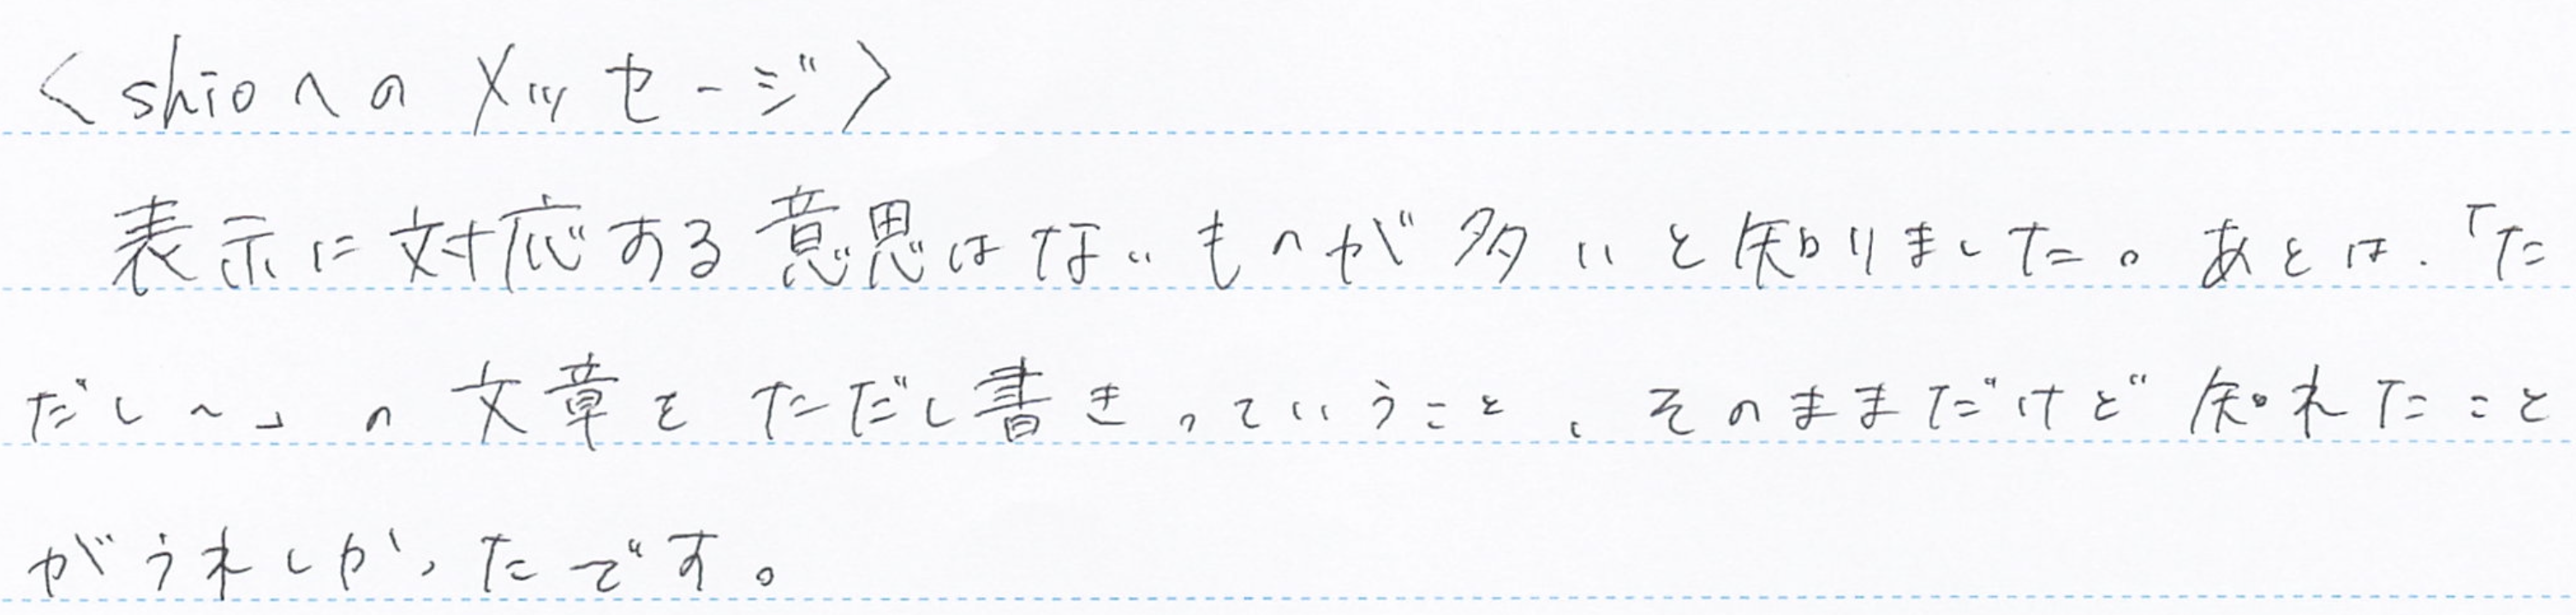 〈shioへのメッセージ〉
表示に対応する意思はないものが多いと知りました。あとは、「た
だし〜」の文章をただし書きっていうこと、そのままだけど知れたこと
がうれしかったです。